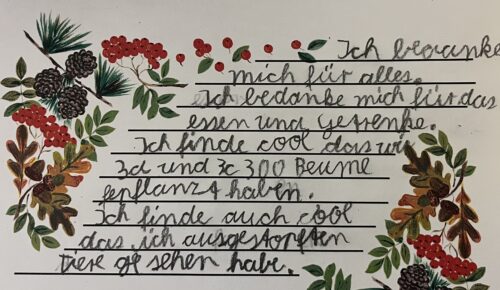 Ich bedanke
mich für alles.
Ich bedanke mich für das
essen und getrenke.
Ich finde cool das wir
3d und 3c 300 Beume
fenflanzt haben.
Ich finde auch cool
das ich ausgestopften
tiere ge sehen habe.